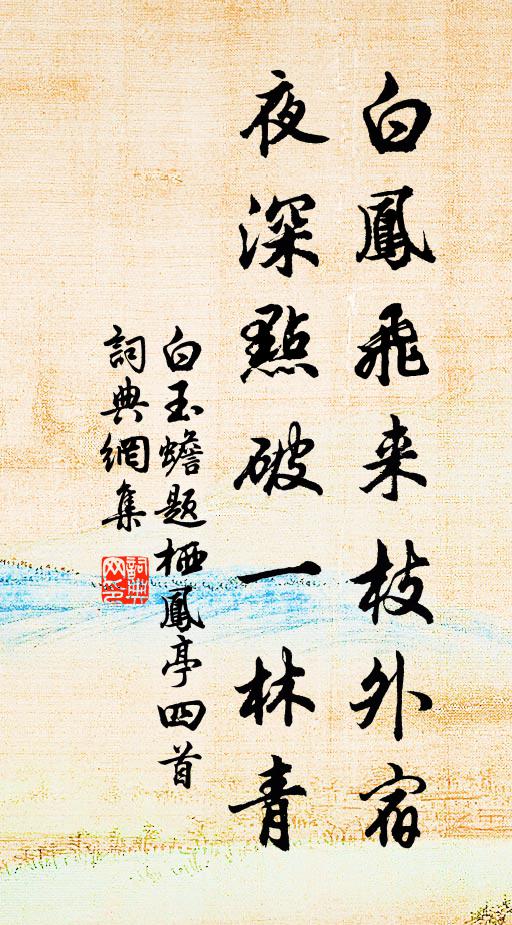 白鳳飛来枝外宿
夜深點破一林青
白玉蟾题栖鳳亭四首
詞典網集
詞典網印